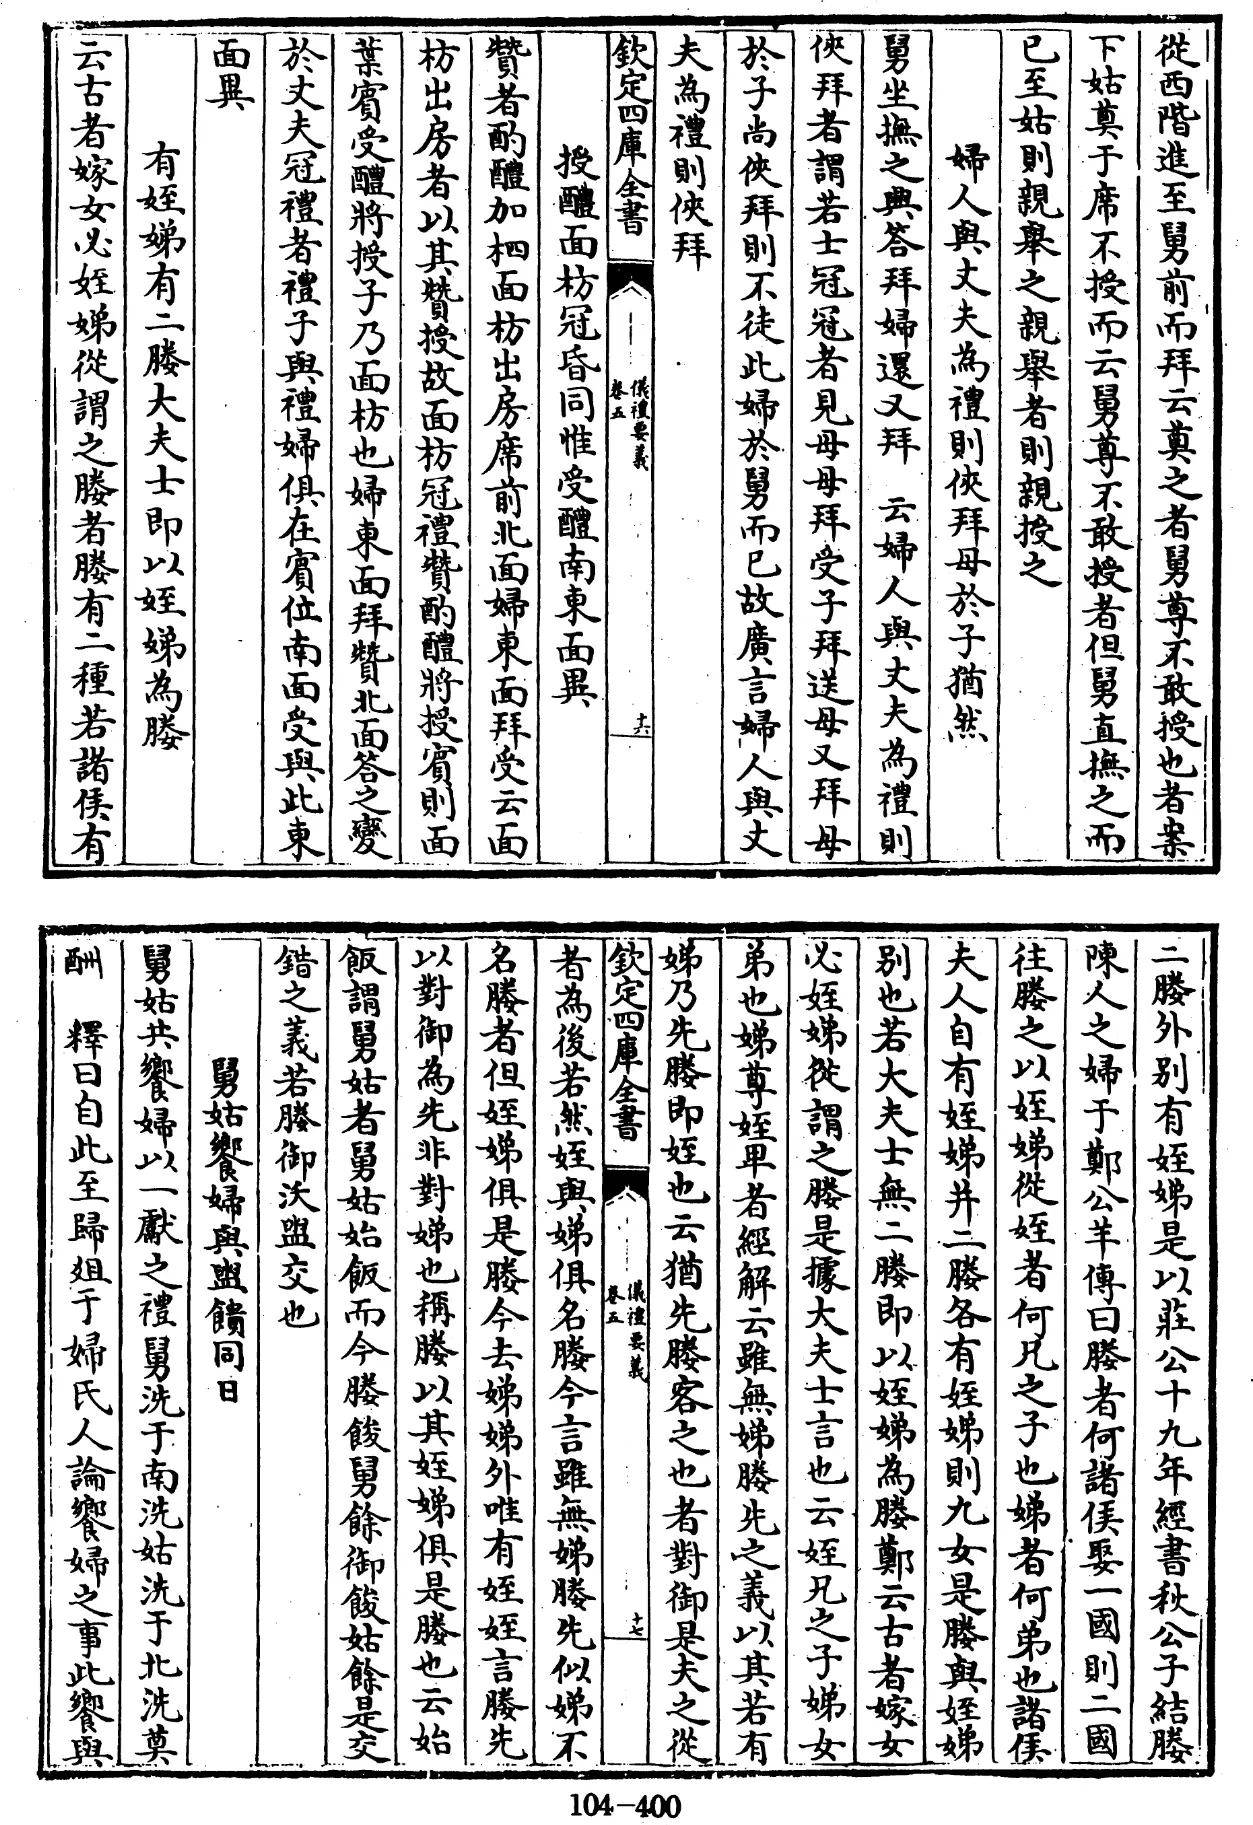 從西階進至舅前而拜云奠之者舅尊不敢授也者案
下姑奠于席不授而云舅尊不敢授者但舅直撫之而
已至姑則親舉之親舉者則親授之
婦人與丈夫為禮則俠拜母於子猶然
舅坐撫之興答拜婦還又拜 云婦人與丈夫為禮則
俠拜者謂若士冠冠者見母母拜受子拜送母又拜母
於子尚俠拜則不徒此婦於舅而已故廣言婦人與丈
夫為禮則俠拜
欽定四庫全書 儀禮要義 卷五 十六
授醴面枋冠昏同惟受醴南東面異
贊者酌醴加柶面枋出房席前北面婦東面拜受云面
枋出房者以其贊授故面枋冠禮贊酌醴將授賓則面
葉賓受醴將授子乃面枋也婦東面拜贊北面答之變
於丈夫冠禮者禮子與禮婦俱在賓位南面受與此東
面異
有姪娣有二媵大夫士即以姪娣為媵
云古者嫁女必姪娣從謂之媵者媵有二種若諸侯有
二媵外別有姪娣是以莊公十九年經書秋公子結媵
陳人之婦于鄭公羊傳曰媵者何諸侯娶一國則二國
往媵之以姪娣從姪者何兄之子也娣者何弟也諸侯
夫人自有姪娣并二媵各有姪娣則九女是媵與姪娣
別也若大夫士無二媵即以姪娣為媵鄭云古者嫁女
必姪娣從謂之媵是據大夫士言也云姪兄之子娣女
弟也娣尊姪卑者經解云雖無娣媵先之義以其若有
娣乃先媵即姪也云猶先媵客之也者對御是夫之從
欽定四庫全書 儀禮要義 卷五 十七
者為後若然姪與娣俱名媵今言雖無娣媵先似娣不
名媵者但姪娣俱是媵今去娣娣外唯有姪姪言媵先
以對御為先非對娣也稱媵以其姪娣俱是媵也云始
飯謂舅姑者舅姑始飯而今媵餕舅餘御餕姑餘是交
錯之義若媵御沃盥交也
舅姑饗婦與盥饋同日
舅姑共饗婦以一獻之禮舅洗于南洗姑洗于北洗奠
酬 釋曰自此至歸俎于婦氏人論饗婦之事此饗與
104-400